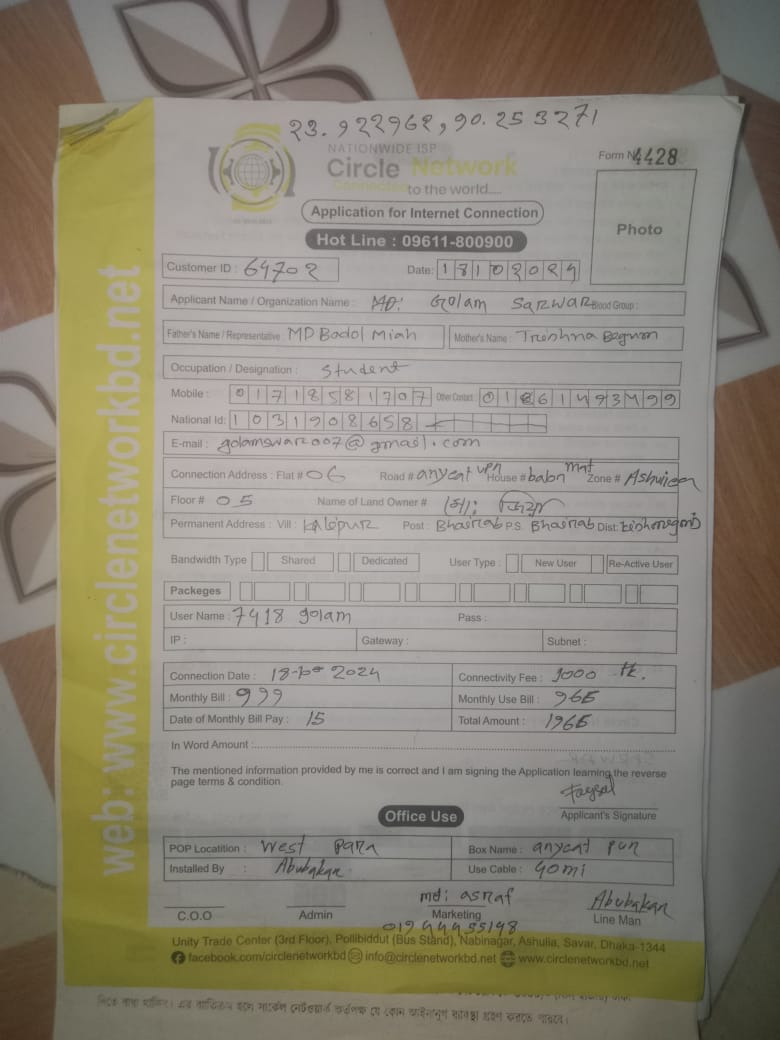 23.922962, 90.253271
NATIONWIDE ISP
Circle Network
Connected to the world....
Form No 4428
Application for Internet Connection
Photo
Hot Line : 09611-800900
Customer ID : 64702 Date: 18102024
Applicant Name / Organization Name : MD: Golam Sarwar Blood Group :
Father's Name / Representative MD Badol Miah Mother's Name : Treshna Begum
Occupation / Designation : Student
Mobile : 01718581707 Other Contact 01861493499
National Id: 1031908658
E-mail : golamswar2007@gmail.com
Connection Address : Flat # 06 Road # House # Zone #
Floor # 05 Name of Land Owner #
Permanent Address : Vill : Kalipur Post : Bhairab P.S. Bhairab Dist:
Bandwidth Type Shared Dedicated User Type : New User Re-Active User
Packeges
User Name : 7418 golam Pass :
IP : Gateway : Subnet :
Connection Date : 2024 Connectivity Fee : 1000 tk.
Monthly Bill : 999 Monthly Use Bill : 965
Date of Monthly Bill Pay : 15 Total Amount : 1965
In Word Amount :
The mentioned information provided by me is correct and I am signing the Application learning the reverse
page terms & condition.
Faysal
Applicant's Signature
Office Use
POP Locatition : West para Box Name :
Installed By : Abubakar Use Cable : 40mi
C.O.O Admin md: asraf Marketing Abubakar Line Man
Unity Trade Center (3rd Floor), Pollibiddut (Bus Stand), Nabinagar, Ashulia, Savar, Dhaka-1344
facebook.com/circlenetworkbd info@circlenetworkbd.net www.circlenetworkbd.net
web: www.circlenetworkbd.net